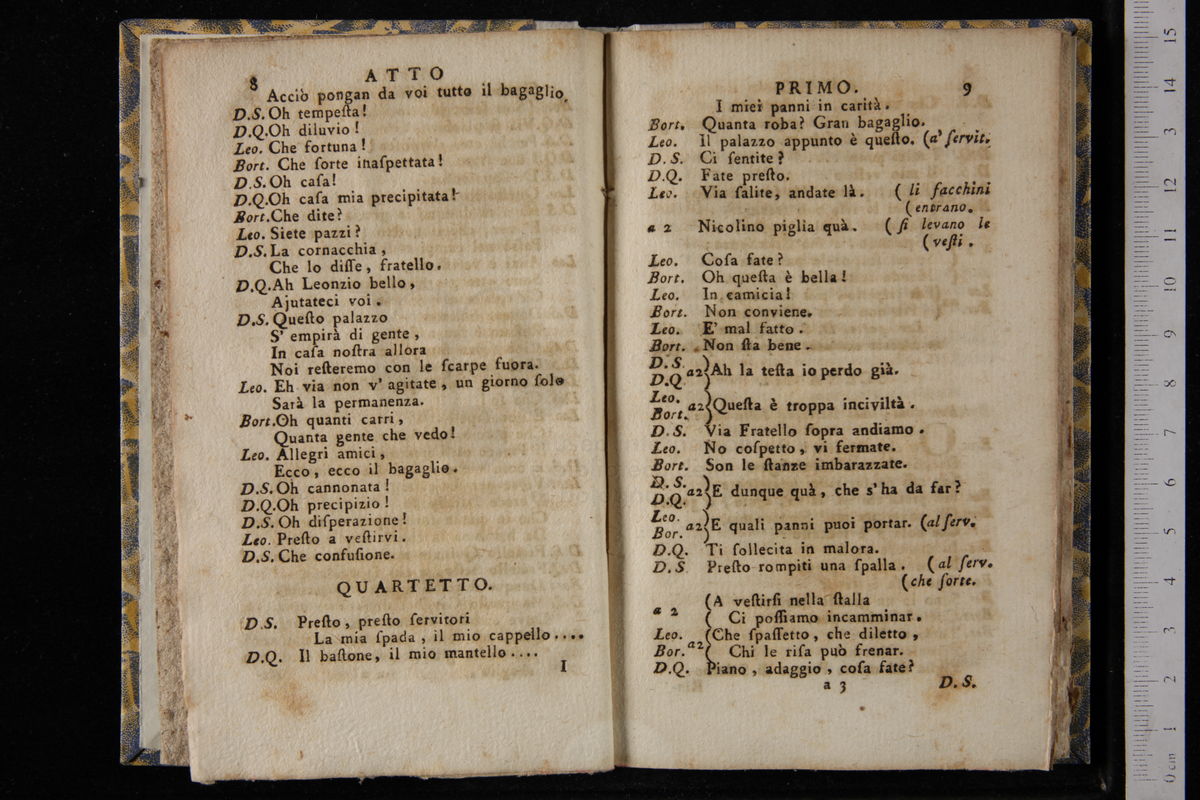 8 ATTO
Acciò pongan da voi tutto il bagaglio.
D.S. Oh tempeſta!
D.Q. Oh diluvio!
Leo. Che fortuna!
Bort. Che ſorte inaſpettata!
D.S. Oh caſa!
D.Q. Oh caſa mia precipitata!
Bort. Che dite?
Leo. Siete pazzi?
D.S. La cornacchia,
Che lo diſſe, fratello.
D.Q. Ah Leonzio bello,
Ajutateci voi.
D.S. Queſto palazzo
S' empirà di gente,
In caſa noſtra allora
Noi reſteremo con le ſcarpe fuora.
Leo. Eh via non v' agitate, un giorno ſolo
Sarà la permanenza.
Bort. Oh quanti carri,
Quanta gente che vedo!
Leo. Allegri amici,
Ecco, ecco il bagaglio.
D.S. Oh cannonata!
D.Q. Oh precipizio!
D.S. Oh diſperazione!
Leo. Preſto a veſtirvi.
D.S. Che confuſione.
QUARTETTO.
D.S. Preſto, preſto ſervitori
La mia ſpada, il mio cappello....
D.Q. Il baſtone, il mio mantello....
I
PRIMO. 9
I miei panni in carità.
Bort. Quanta roba? Gran bagaglio.
Leo. Il palazzo appunto è queſto. (a' ſervit.
D.S. Ci ſentite?
D.Q. Fate preſto.
Leo. Via ſalite, andate là. (li facchini
(entrano.
a 2 Nicolino piglia quà. (ſi levano le
(veſti.
Leo. Coſa fate?
Bort. Oh queſta è bella!
Leo. In camicia!
Bort. Non conviene.
Leo. E' mal fatto.
Bort. Non ſta bene.
D.S.
D.Q. a2 Ah la teſta io perdo già.
Leo.
Bort. a2 Queſta è troppa inciviltà.
D.S. Via Fratello ſopra andiamo.
Leo. No coſpetto, vi fermate.
Bort. Son le ſtanze imbarazzate.
D.S.
D.Q. a2 E dunque quà, che s'ha da far?
Leo.
Bor. a2 E quali panni puoi portar. (al ſerv.
D.Q. Ti ſollecita in malora.
D.S Preſto rompiti una ſpalla. (al ſerv.
(che ſorte.
a 2 (A veſtirſi nella ſtalla
( Ci poſſiamo incamminar.
Leo. (Che ſpaſſetto, che diletto,
Bor. a2( Chi le riſa può frenar.
D.Q. Piano, adaggio, coſa fate?
a 3 D.S.